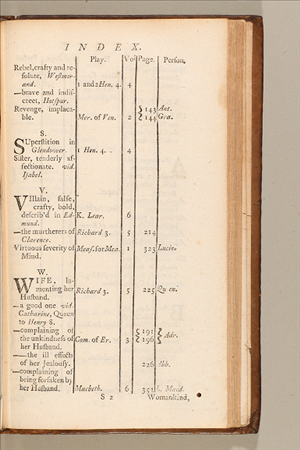 INDEX.
Play. Vo Page. Person.
Rebel, crafty and re-
solute, Westmor-
and. 1 and 2 Hen. 4. 4
—brave and indis-
creet, Hotspur.
Revenge, implaca- { 143 Ant.
ble. Mer. of Ven. 2 { 144 Gra.
S.
SUperstition in
Glendower. 1 Hen. 4. 4
Sister, tenderly af-
fectionate. vid.
Isabel.
V.
VIllain, false,
crafty, bold,
describ'd in Ed- K. Lear. 6
mund.
—the murtherers of Richard 3. 5 214
Clarence.
Virtuous severity of Meas. for Mea. 1 323 Lucio.
Mind.
W.
WIFE, la-
menting her Richard 3. 5 225 Queen.
Husband.
—a good one vid.
Catharine, Queen
to Henry 8.
—complaining of { 191 }
the unkindness of Com. of Er. 3 { 196 } Adr.
her Husband.
——the ill effects
of her Jealousy. 226 Abb.
—complaining of
being forsaken by
her Husband. Macbeth. 6 351 L. Macd.
S 2 Womankind,